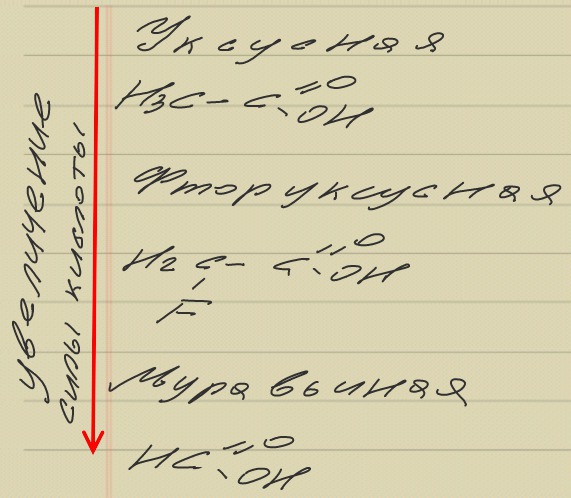 Увеличение
силы кислоты
Уксусная
H3C-C=O
OH
Фторуксусная
H2C-C=O
OH
F
Муравьиная
HC=O
OH